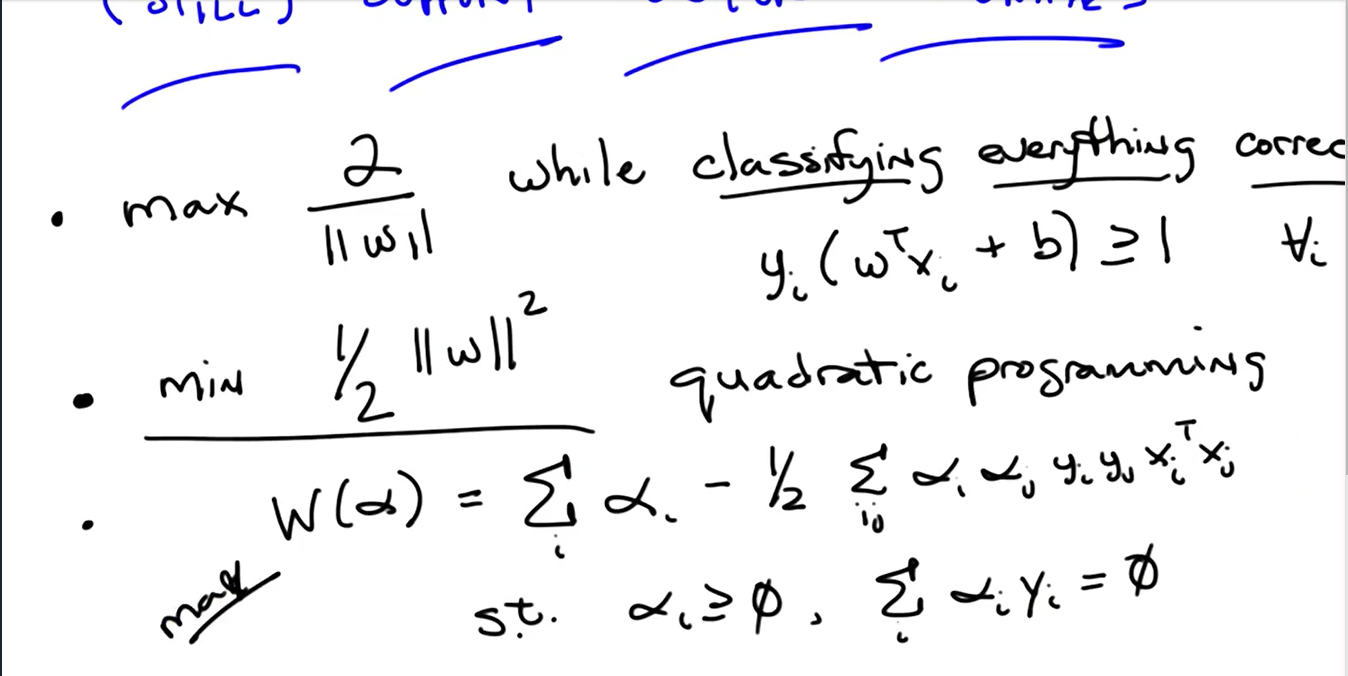 • max 2/||w|| while classifying everything correc
yᵢ(wᵀxᵢ + b) ≥ 1 ∀ᵢ
• min 1/2 ||w||² quadratic programming
• max W(α) = Σᵢ αᵢ - 1/2 Σᵢⱼ αᵢ αⱼ yᵢ yⱼ xᵢᵀxⱼ
s.t. αᵢ ≥ 0, Σᵢ αᵢ yᵢ = 0